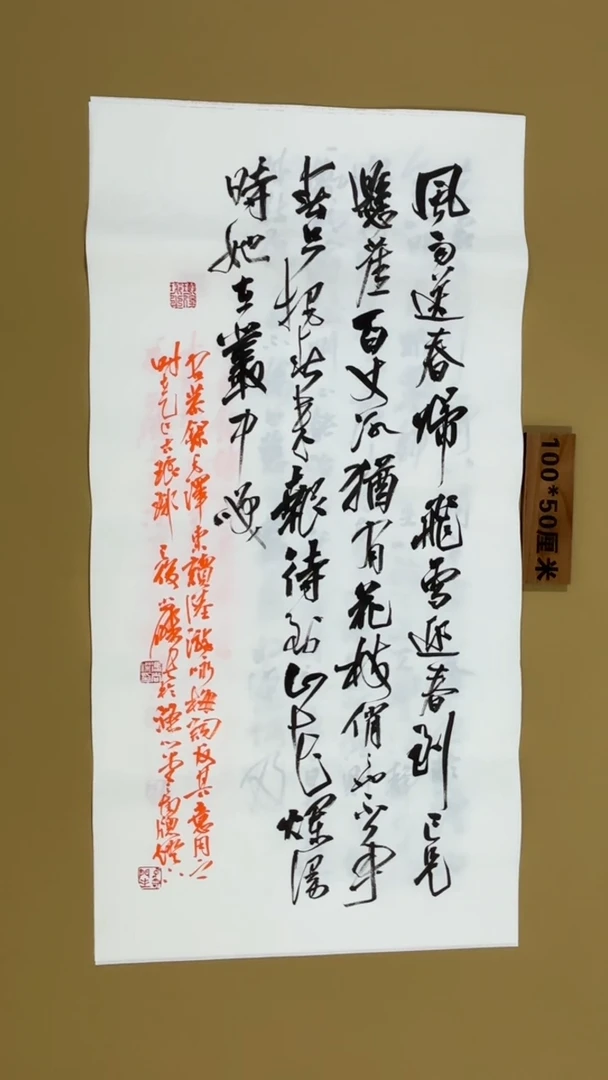 風雨送春歸飛雪迎春到已是
懸崖百丈冰猶有花枝俏俏不爭
春只把春來報待到山花爛漫
時她在叢中笑
右恭錄毛澤東讀陸游咏梅詞反其意用之
时在乙巳
100*50厘米